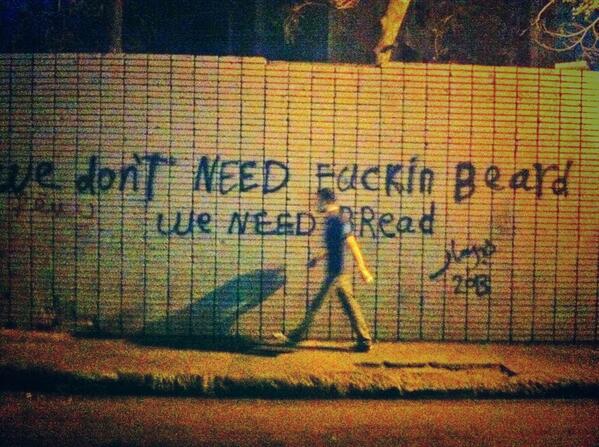 we don't NEED Fuckin Beard
we NEED BRead
2013